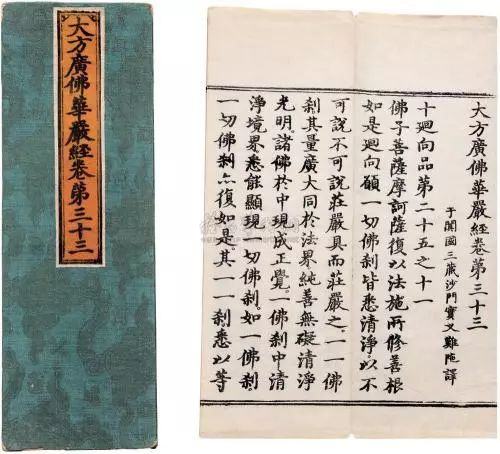 大方廣佛華嚴經卷第三十三
大方廣佛華嚴經卷第三十三
于闐國三藏沙門實叉難陁譯
十迴向品第二十五之十一
佛子菩薩摩訶薩復以法施所修善根
如是迴向願一切佛刹皆悉清淨以不
可說不可說莊嚴具而莊嚴之。一一佛
刹其量廣大同於法界純善無礙清淨
光明諸佛於中現成正覺。一佛刹中清
淨境界悉能顯現一切佛刹。如一佛刹。
一切佛刹亦復如是。其一一刹悉以等